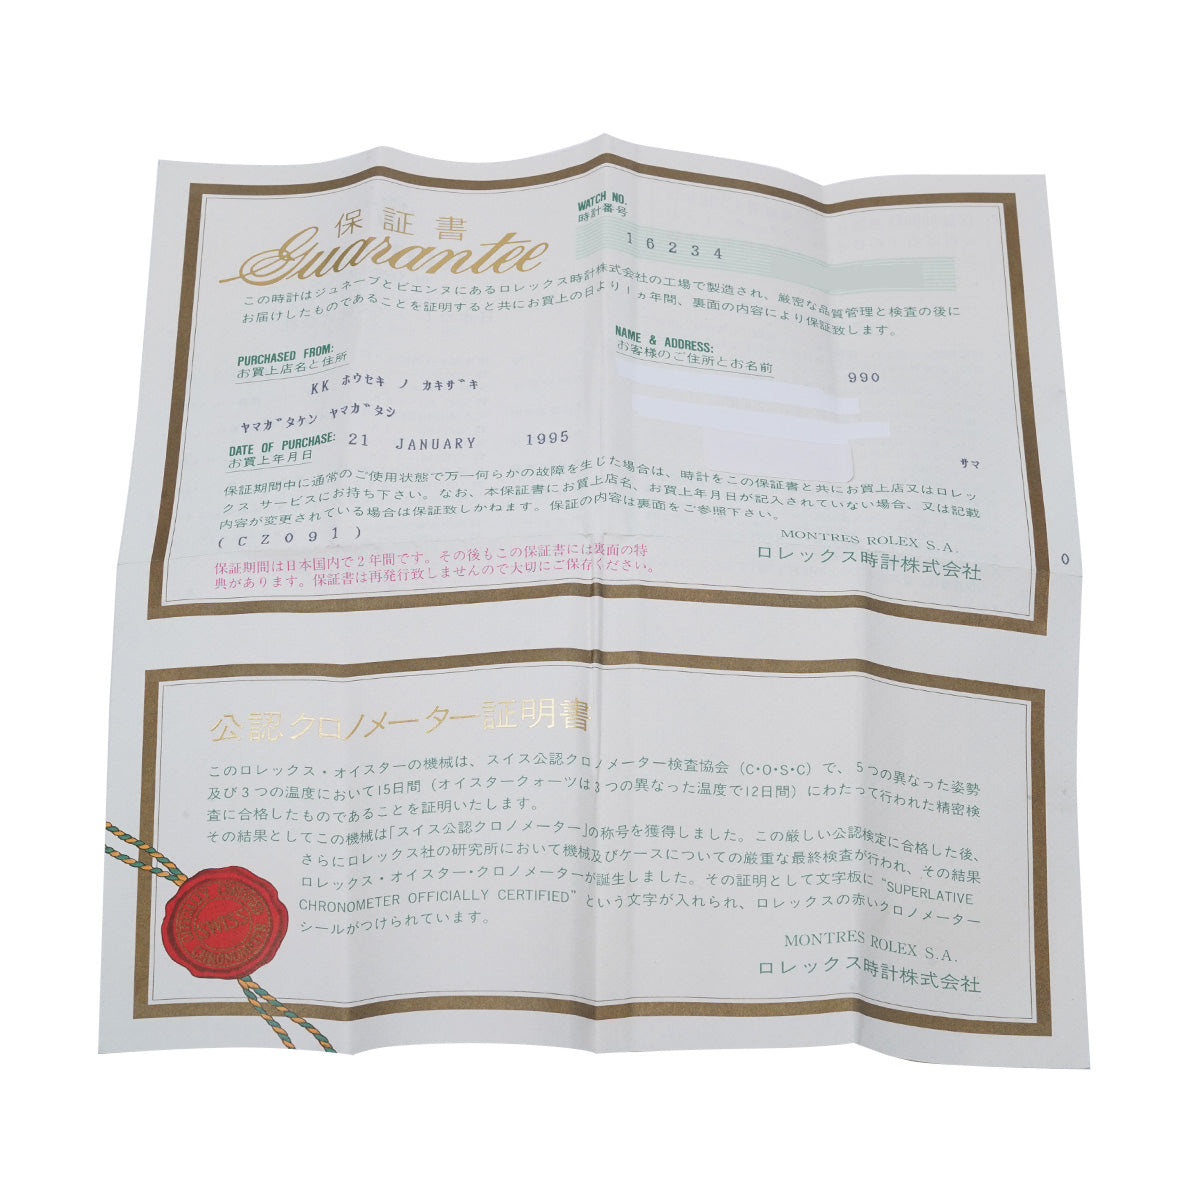 保証書
Guarantee
WATCH NO.
時計番号
16234
この時計はジュネーブとビエンヌにあるロレックス時計株式会社の工場で製造され、厳密な品質管理と検査の後に
お届けしたものであることを証明すると共にお買上の日より1ヵ年間、裏面の内容により保証致します。
PURCHASED FROM:
お買上店名と住所
KK ホウセキ ノ カキザキ
ヤマガタケン ヤマガタシ
NAME & ADDRESS:
お客様のご住所とお名前
990
サマ
DATE OF PURCHASE: 21 JANUARY 1995
お買上年月日
保証期間中に通常のご使用状態で万一何らかの故障を生じた場合は、時計をこの保証書と共にお買上店又はロレッ
クス サービスにお持ち下さい。なお、本保証書にお買上店名、お買上年月日が記入されていない場合、又は記載
内容が変更されている場合は保証致しかねます。保証の内容は裏面をご参照下さい。
(CZ091)
保証期間は日本国内で2年間です。その後もこの保証書には裏面の特
典があります。保証書は再発行致しませんので大切にご保存ください。
MONTRES ROLEX S.A.
ロレックス時計株式会社
0
公認クロノメーター証明書
このロレックス・オイスターの機械は、スイス公認クロノメーター検査協会(C・O・S・C)で、5つの異なった姿勢
及び3つの温度において15日間(オイスタークォーツは3つの異なった温度で12日間)にわたって行われた精密検
査に合格したものであることを証明いたします。
その結果としてこの機械は「スイス公認クロノメーター」の称号を獲得しました。この厳しい公認検定に合格した後、
さらにロレックス社の研究所において機械及びケースについての厳重な最終検査が行われ、その結果
ロレックス・オイスター・クロノメーターが誕生しました。その証明として文字板に“SUPERLATIVE
CHRONOMETER OFFICIALLY CERTIFIED”という文字が入れられ、ロレックスの赤いクロノメーター
シールがつけられています。
MONTRES ROLEX S.A.
ロレックス時計株式会社
SWISS
CHRONOMETER